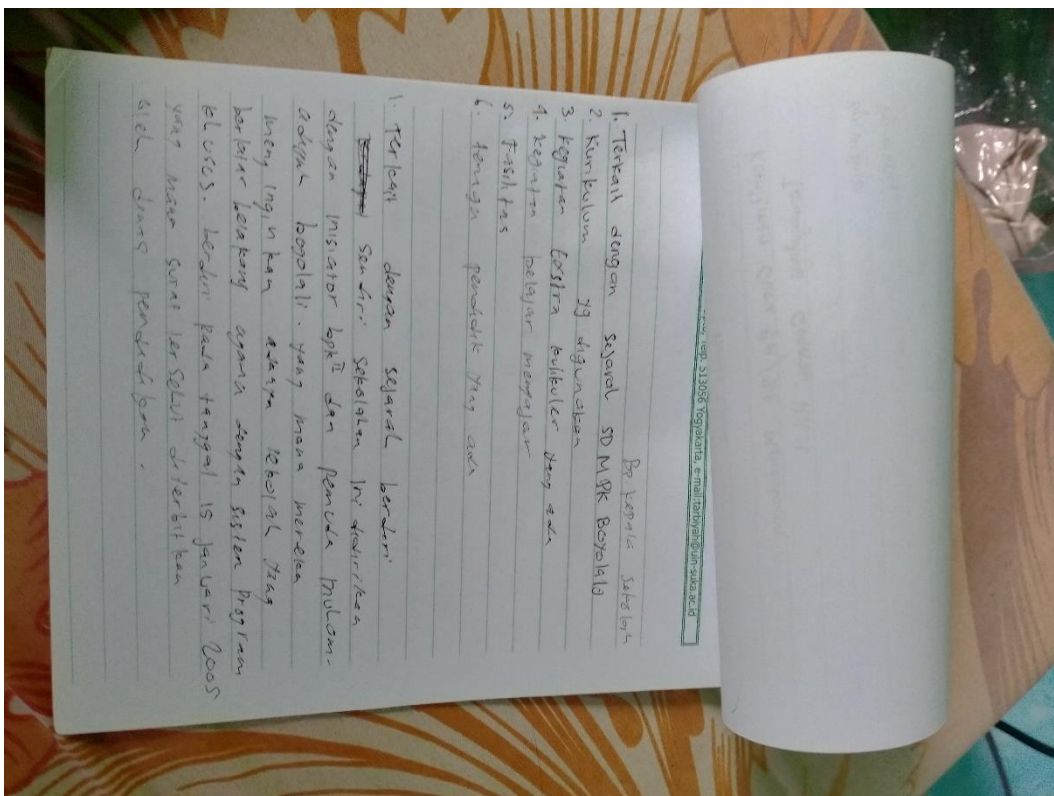 Telp. 513056 Yogyakarta, e-mail:tarbiyah@uin-suka.ac.id
Bp kepala sekolah
1. Terkait dengan sejarah SD MPK Boyolali
2. Kurikulum yg digunakan
3. kegiatan Exstra kulikuler yang ada
4. kegiatan belajar mengajar
5. Fasilitas
6. tenaga pendidik yang ada
1. Terkait dengan sejarah berdiri
sendiri sekolahan ini didirikan
dengan inisiator bpk" dan pemuda muham-
adiyah boyolali. yang mana mereka
meng inginkan adanya sekolah yang
berlatar belakang agama dengan sistem program
khuses. berdiri pada tanggal 15 januari 2005
yang mana surat tersebut diterbitkan
oleh dinas pendidikan.